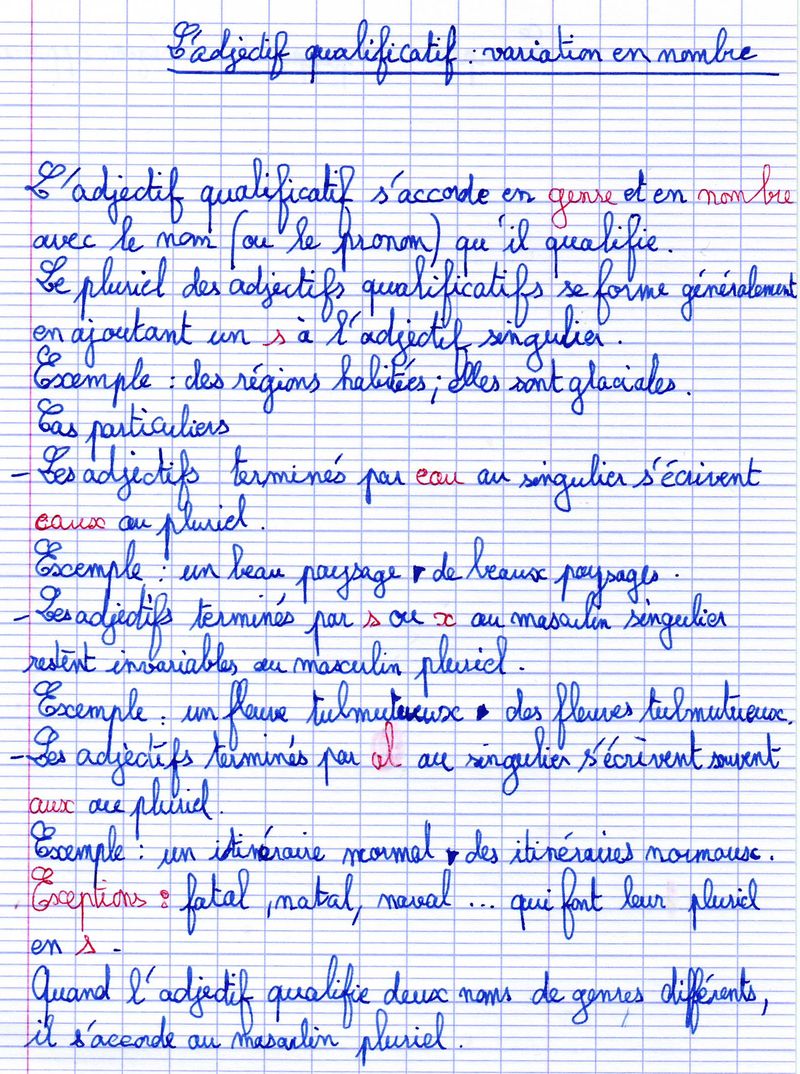 L'adjectif qualificatif : variation en nombre
L'adjectif qualificatif s'accorde en genre et en nombre
avec le nom (ou le pronom) qu'il qualifie.
Le pluriel des adjectifs qualificatifs se forme généralement
en ajoutant un s à l'adjectif singulier.
Exemple : des régions habitées ; elles sont glaciales.
Cas particuliers
- Les adjectifs terminés par eau au singulier s'écrivent
eaux au pluriel.
Exemple : un beau paysage ▸ de beaux paysages.
- Les adjectifs terminés par s ou x au masculin singulier
restent invariables au masculin pluriel.
Exemple : un fleuve tulmutueux ▸ des fleuves tulmutueux.
- Les adjectifs terminés par al au singulier s'écrivent souvent
aux au pluriel.
Exemple : un itinéraire normal ▸ des itinéraires normaux.
Exceptions : fatal, natal, naval ... qui font leur pluriel
en s.
Quand l'adjectif qualifie deux noms de genres différents,
il s'accorde au masculin pluriel.